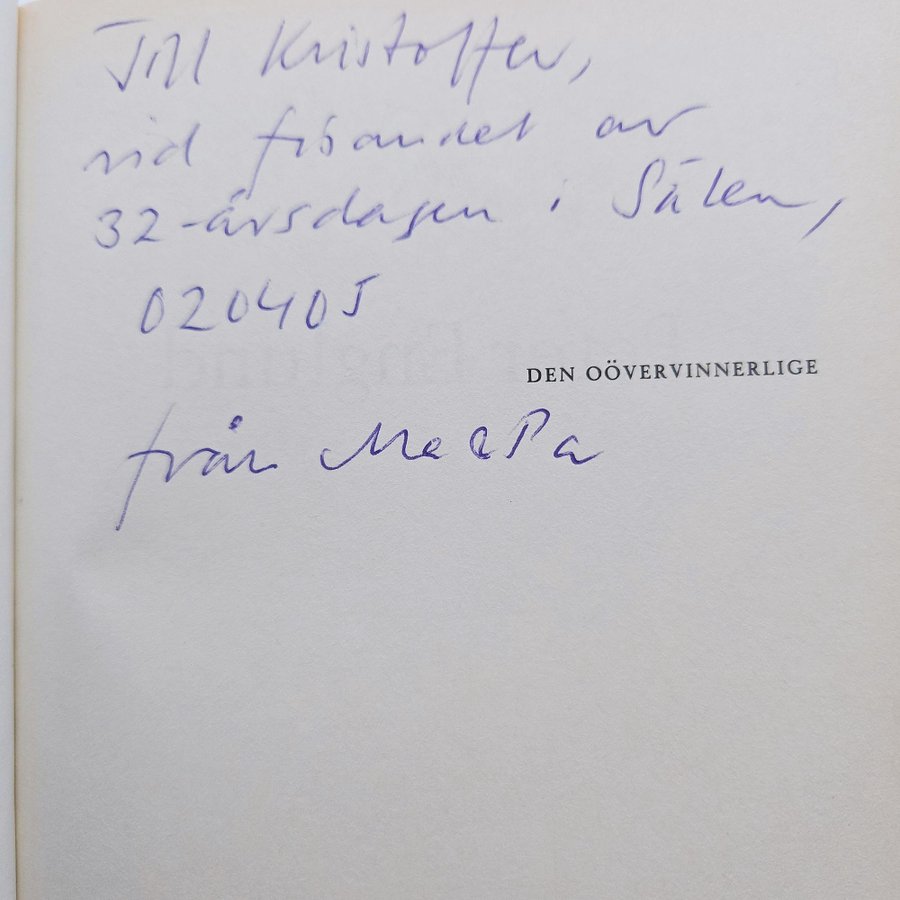 Till Kristoffer,
vid firandet av
32-årsdagen i Sälen,
020405
DEN OÖVERVINNERLIGE
från Ma & Pa